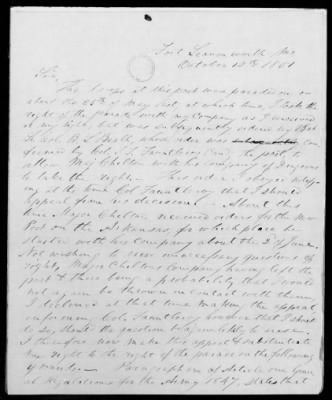 Fort Leavenworth Mo
October 12th 1851
Sir,
The troops at this post were paraded on
about the 25th of May last at which time, I took the
right of the parade with my company as I conceived
it my right but was subsequently ordered by Bvt
Lt. Col. B. L. Beall, which order was con
firmed by Col. Fauntleroy Comdg the post, to
allow Maj Chilton with his company of Dragoons
to take the right. This not
my at the time Col Fauntleroy that I should
appeal from his decision. About this
time Major Chilton received orders for the New
Post on the Arkansas, for which place he
started with his Company about the 2d of June.
Not wishing to raise unnecessary questions of
right, Major Chiltons Company having left the
post & there being a probability that I would
not again be thrown in contact with them
I did not at that time make the appeal,
informing Col. Fauntleroy however that I should
do so, should the question be again likely to arise.
I therefore now make this appeal & substantiate
my right to the right of the parade on the following
grounds. Paragraph 5 of Article one Gener
al Regulations for the Army 1847, states that